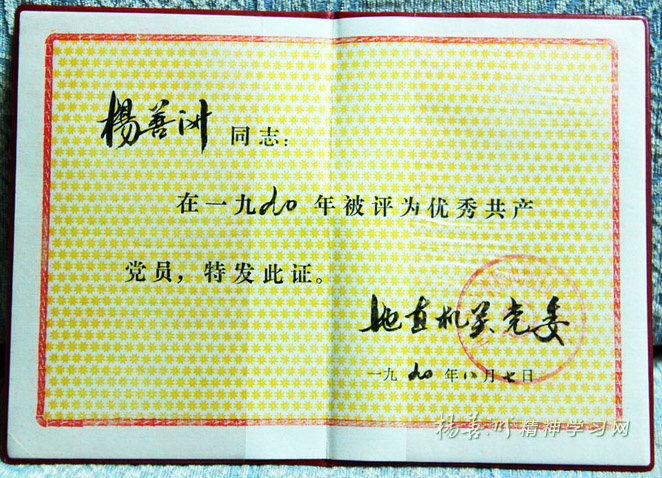 楊善洲 同志：
在一九九0年被评为优秀共产
党员，特发此证。
地直机关党委
一九九0年八月七日
杨善洲精神学习网